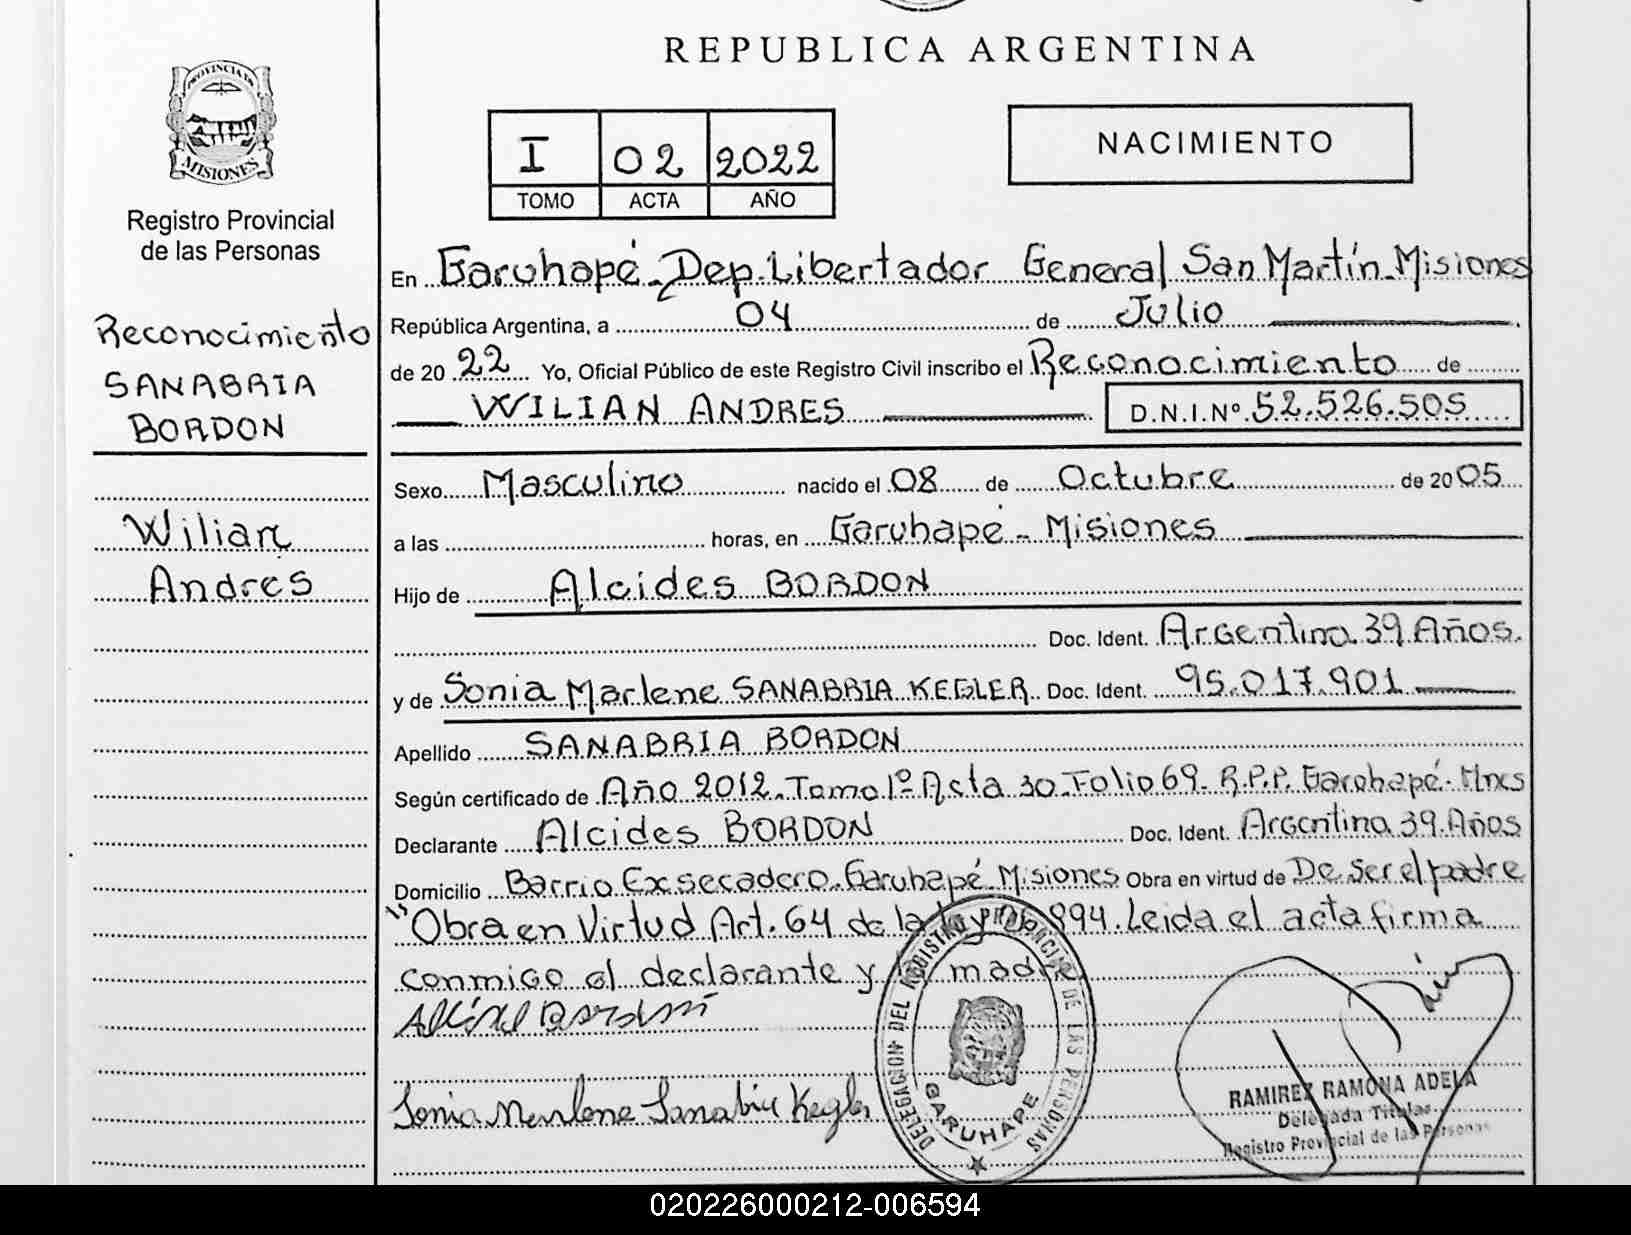 REPUBLICA ARGENTINA
PROVINCIA DE
MISIONES
Registro Provincial
de las Personas
Reconocimiento
SANABRIA
BORDON
Wilian
Andrés
I 02 2022
TOMO ACTA AÑO
NACIMIENTO
En Garuhapé - Dep. Libertador General San Martín - Misiones
República Argentina, a 04 de Julio
de 2022 Yo, Oficial Público de este Registro Civil inscribo el Reconocimiento de
WILIAN ANDRES D.N.I.Nº 52.526.505
Sexo Masculino nacido el 08 de Octubre de 2005
a las horas, en Garuhapé - Misiones
Hijo de Alcides BORDON
Doc. Ident. Argentino 39 Años.
y de Sonia Marlene SANABRIA KEGLER Doc. Ident. 95.017.901
Apellido SANABRIA BORDON
Según certificado de Año 2012. Tomo 1º Acta 30 - Folio 69 - R.P.P. Garuhapé - Mnes
Declarante Alcides BORDON Doc. Ident. Argentino 39 Años
Domicilio Barrio Ex secadero - Garuhapé - Misiones Obra en virtud de De Ser el padre
"Obra en Virtud Art. 64 de la Ley 994. Leida el acta firma
conmigo el declarante y la madre
Sonia Marlene Sanabria Kegler
DELEGACION DEL REGISTRO PROVINCIAL DE LAS PERSONAS
GARUHAPE
RAMIREZ RAMONA ADELA
Delegada Titular
Registro Provincial de las Personas
020226000212-006594